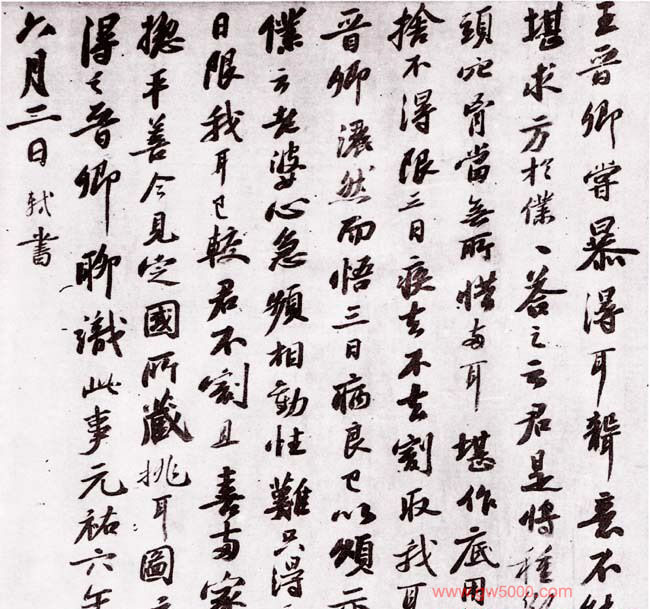 王晉卿嘗暴得耳聾意不
堪求方於僕〻答之云君是將種
頭穴胷當無所惜兩耳堪作底用
捨不得限三日疾去不去割取我耳
晉卿灑然而悟三日病良已以頌
僕云老婆心急頻相勸性難只得
日限我耳已較君不割且喜兩家
揔平善今見定國所藏挑耳圖
得之晉卿聊識此事元祐六年
六月三日軾書
www.gw5000.com